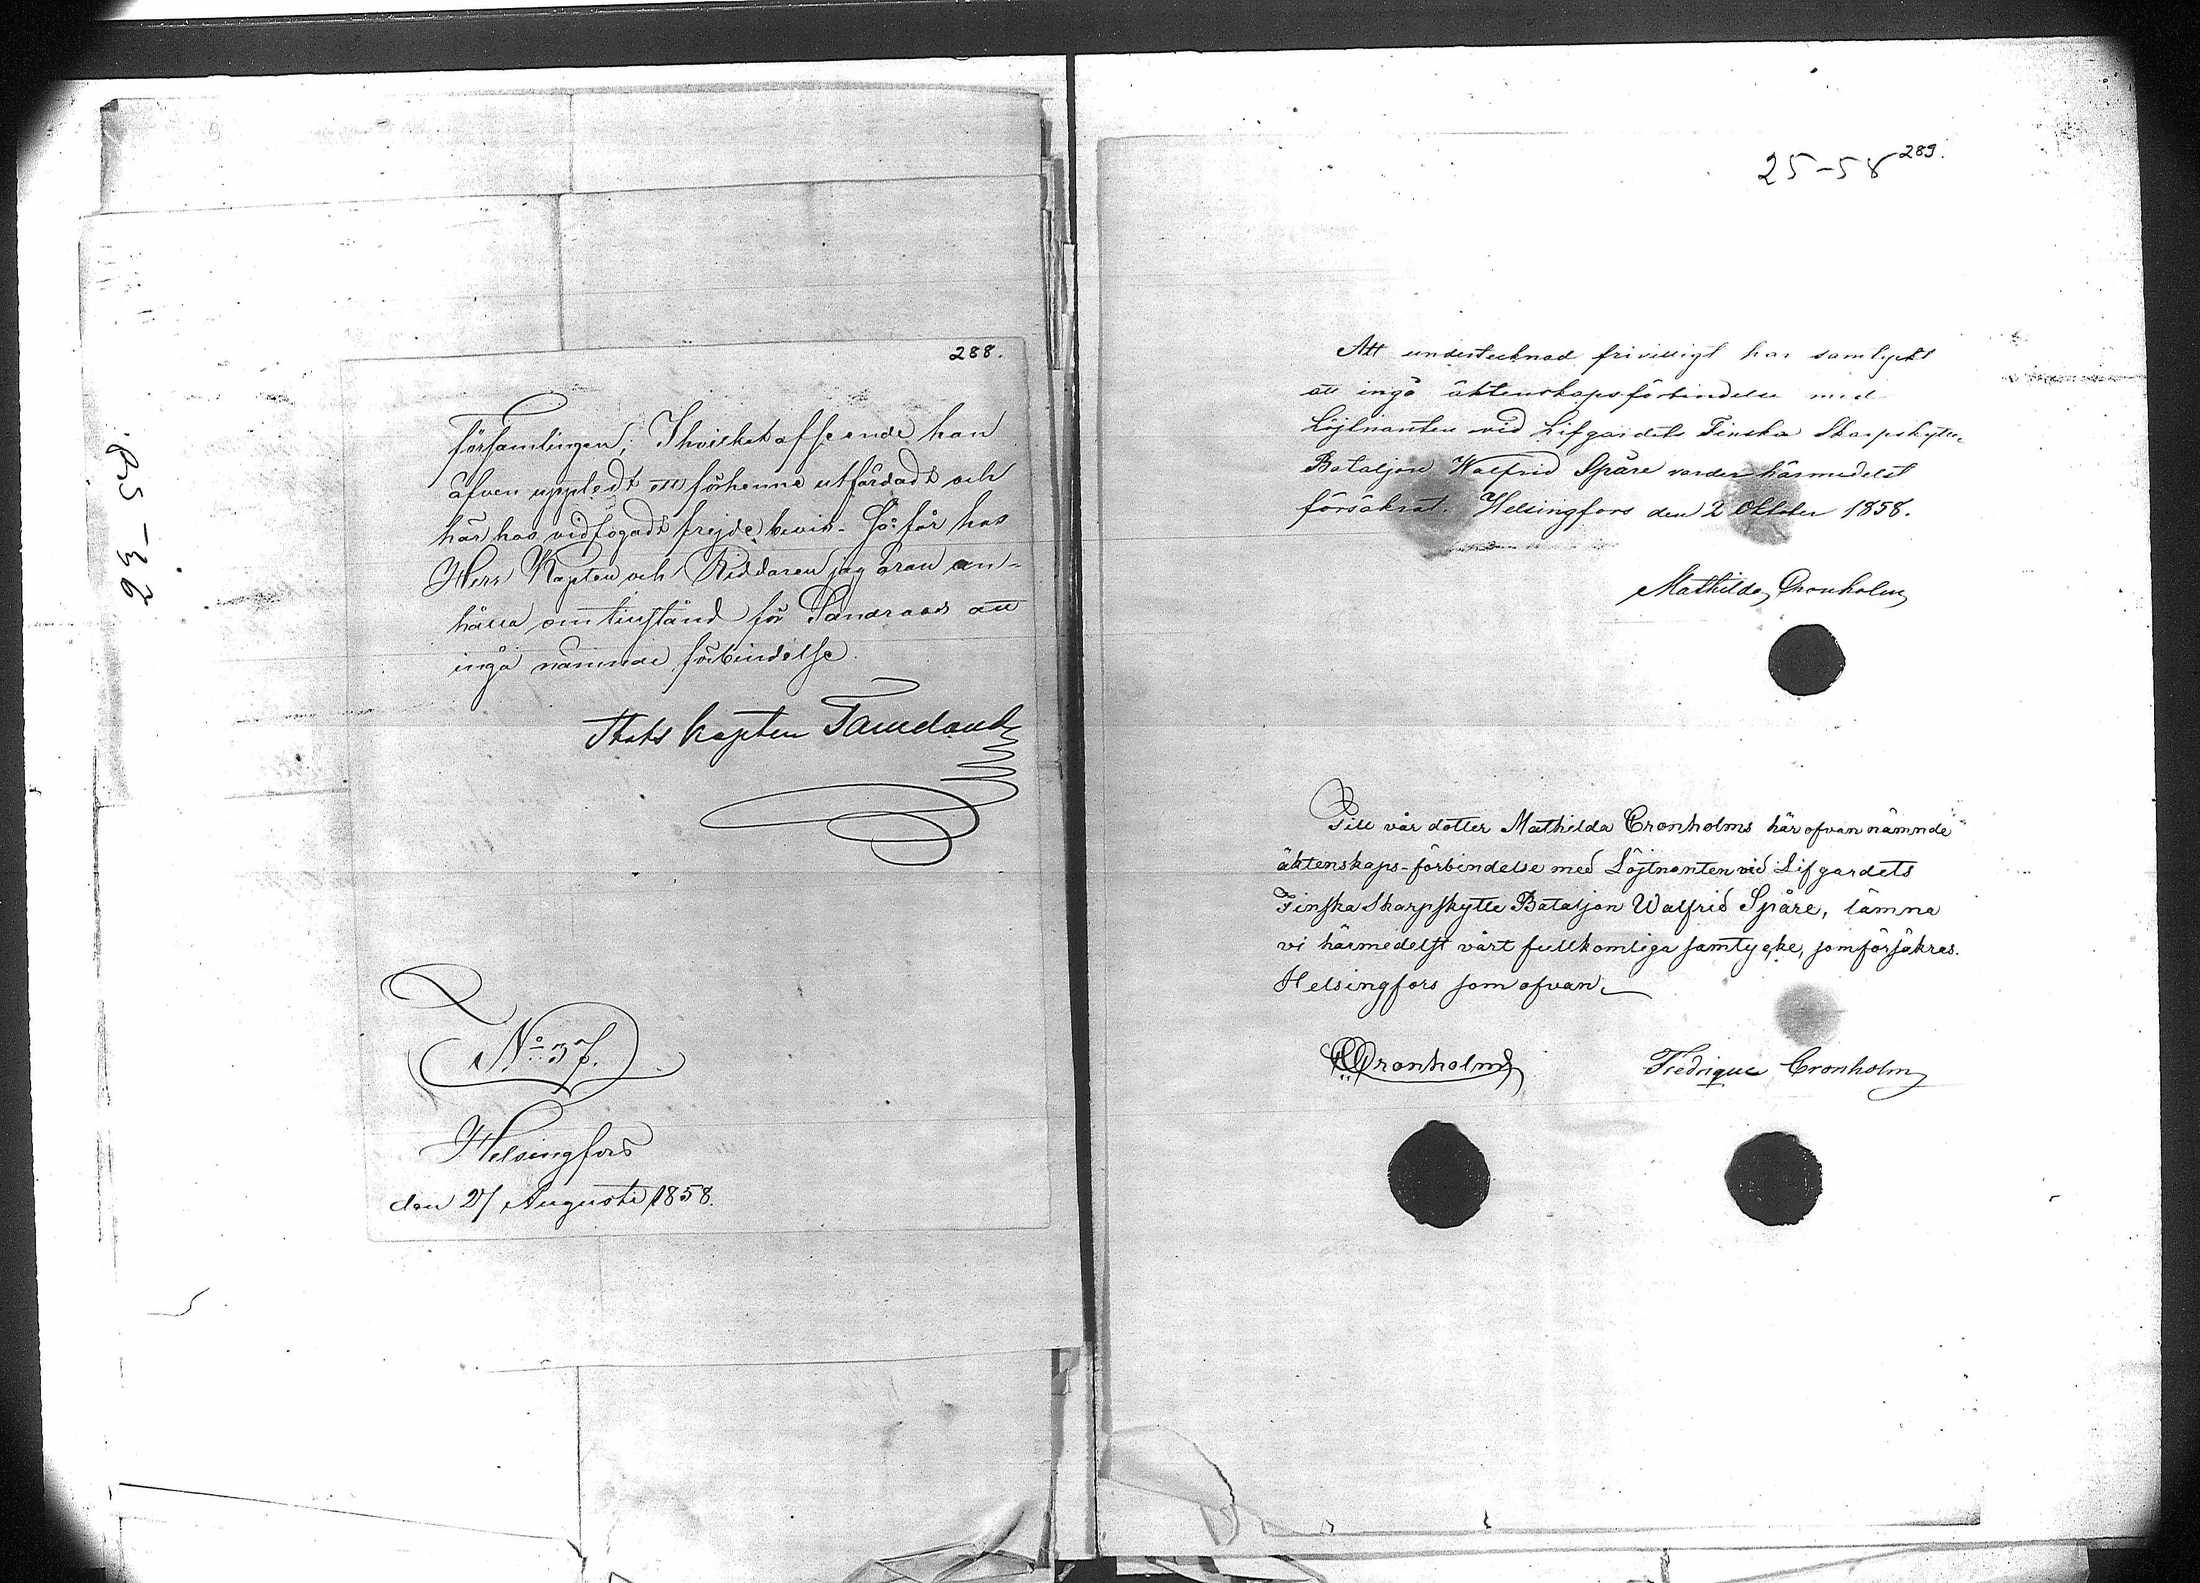 288.
församlingen; I hvilket afseende han
äfven uppledt ett för henne utfärdadt och
här hos vidfogadt frejde bevis. Så får hos
Herr Kapten och Riddaren jag äran an-
hålla om tillstånd för Sandraos att
ingå nämnde förbindelse.
Stabs kapten Tamelander
No 37.
Helsingfors
den 27 Augusti 1858.
25-58 289.
Att undertecknad frivilligt har samtyckt
att ingå äktenskapsförbindelse med
Löjtnanten vid Lifgardets Finska Skarpskytte-
Bataljon Walfrid Spåre varder härmedelst
försäkrat. Helsingfors den 2 Oktober 1858.
Mathilda Cronholm
Till vår dotter Mathilda Cronholms här ofvan nämnde
äktenskaps-förbindelse med Löjtnanten vid Lifgardets
Finska Skarpskytte Bataljon Walfrid Spåre, lämna
vi härmedelst vårt fullkomliga samtycke, som försäkras.
Helsingfors som ofvan.
Cronholm
Fredrique Cronholm